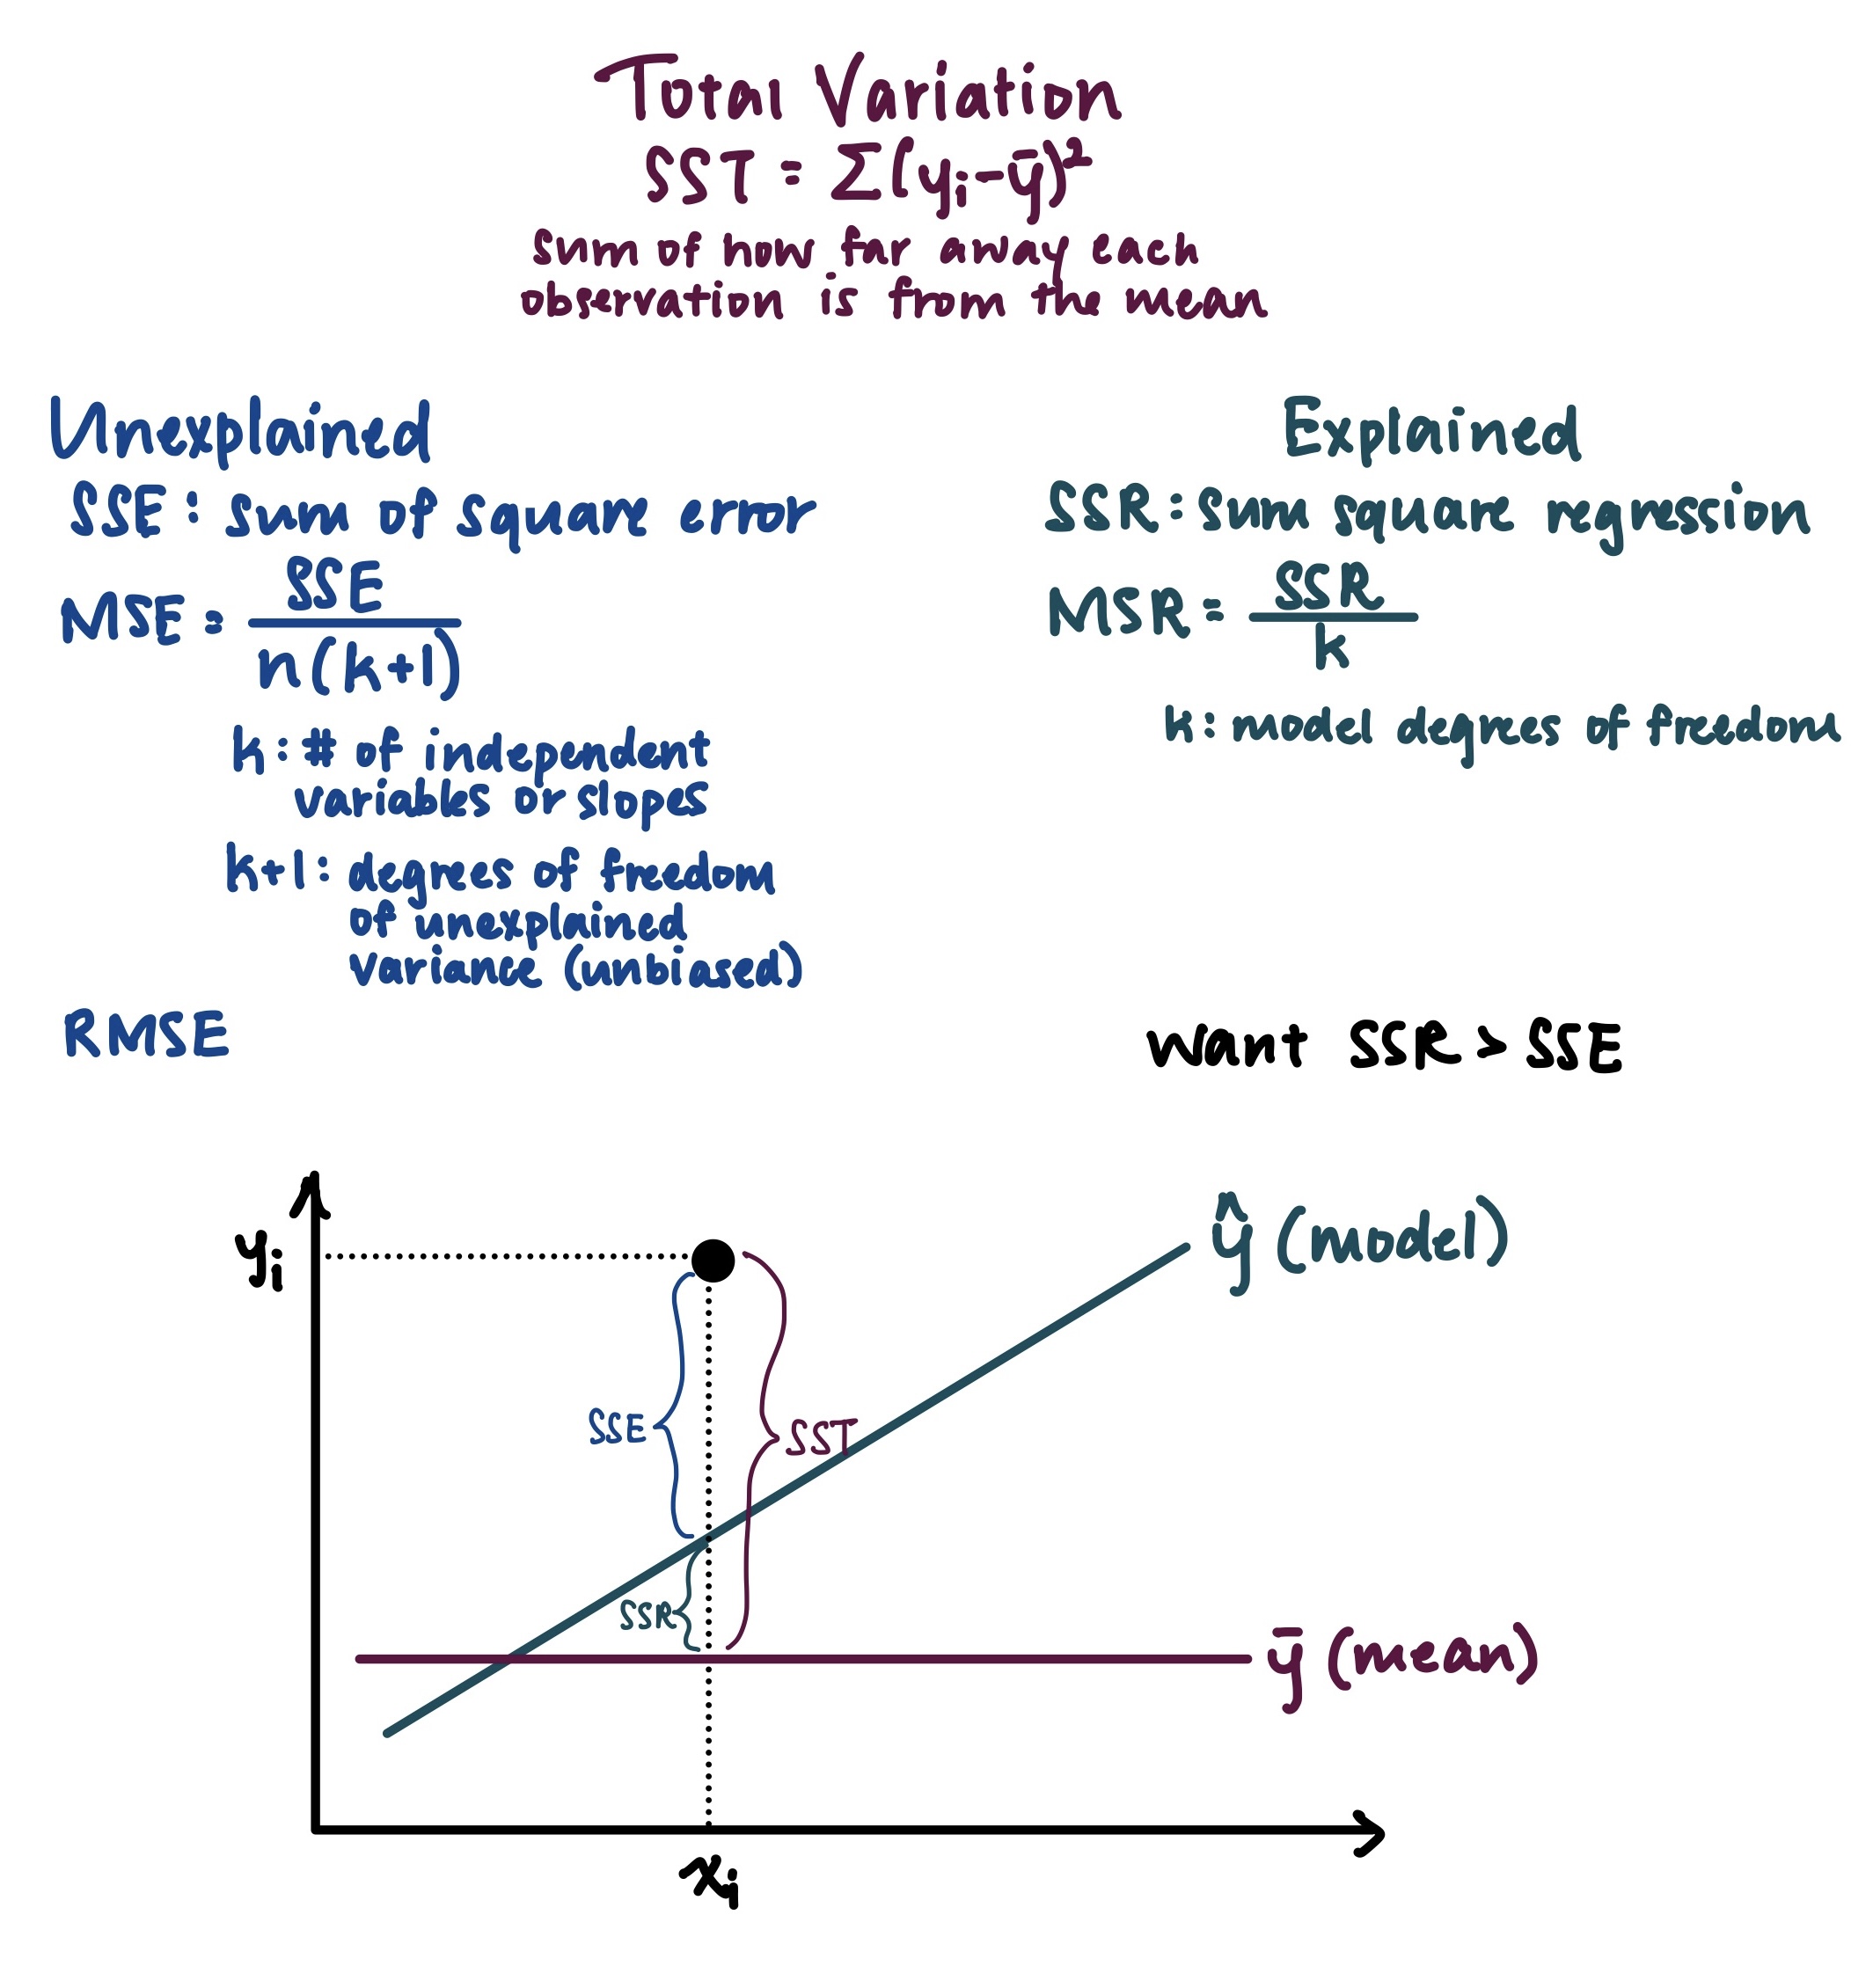 Total Variation
SST = Σ(yi-ȳ)²
sum of how far away each
observation is from the mean
Unexplained
SSE: sum of square error
MSE = SSE / n(k+1)
k: # of independent
variables or slopes
k+1: degrees of freedom
of unexplained
variance (unbiased)
RMSE
Explained
SSR: sum square regression
MSR = SSR / k
k: model degrees of freedom
Want SSR > SSE
yi
ŷ (model)
SSE
SST
SSR
ȳ (mean)
xi